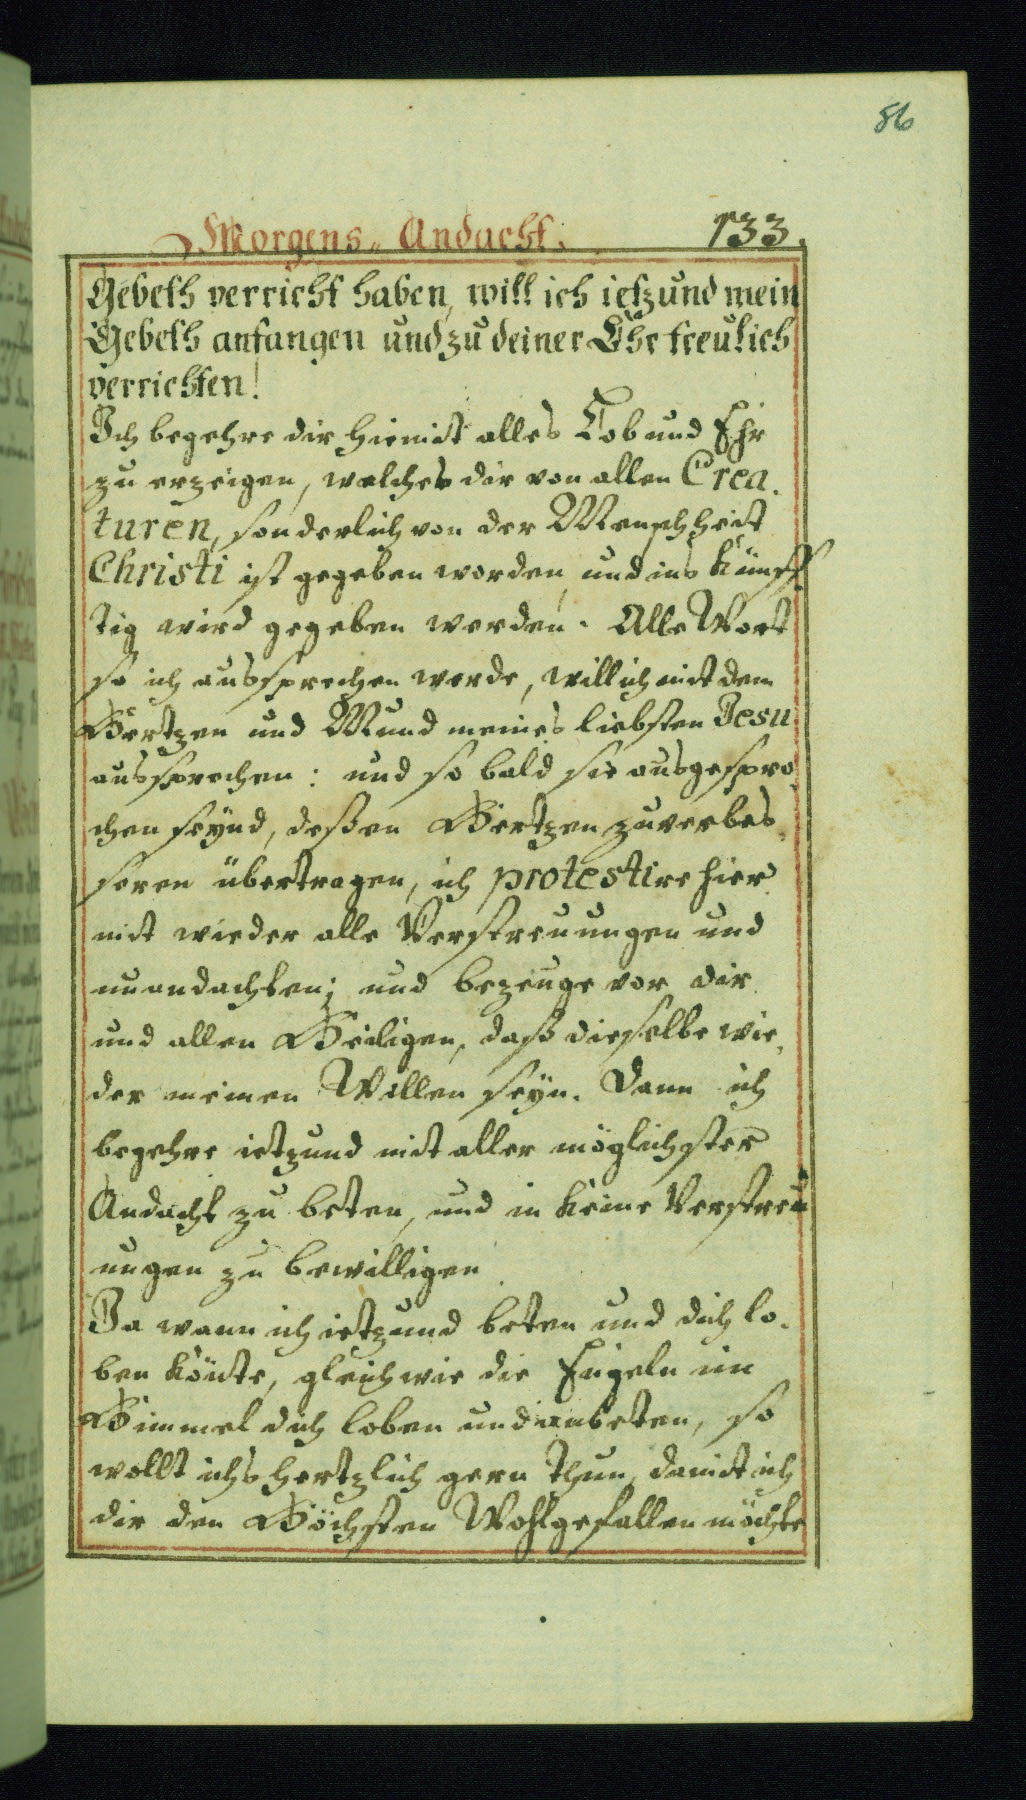 86
Morgens„ Andacht. 133.
Gebeth verricht haben, will ich ietzund mein
Gebeth anfangen und zu deiner Ehr treulich
verrichten!
Ich begehre dir hiemit alles Lob und Ehr
zu erzeigen, welches dir von allen Crea.
turen, sonderlich von der Menschheit
Christi ist gegeben worden, und ins künff
tig wird gegeben werden. Alle Wort
so ich aussprechen werde, will ich mit dem
Hertzen und Mund meines liebsten Jesu
aussprechen: und so bald sie ausgespro
chen seynd, deßen Hertzen zuverbes
seren übertragen, ich protestire hier
mit wieder alle Verstreuungen und
unandachten; und bezeuge vor dir
und allen Heiligen, daß dieselbe wie,
der meinen Willen seyn. Dann ich
begehre ietzund mit aller möglichster
Andacht zu beten, und in keine Verstreu
ungen zu bewilligen
Ja wann ich ietzund beten und dich lo.
ben könte, gleichwie die Engeln im
Himmel dich loben und anbeten, so
wollt ichs hertzlich gern thun, damit ich
dir den Höchsten Wohlgefallen möchte